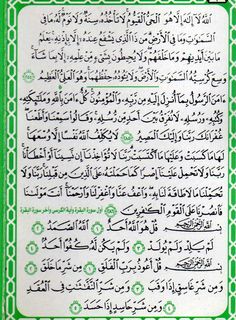 ٱللَّهُ لَآ إِلَٰهَ إِلَّا هُوَ ٱلْحَىُّ ٱلْقَيُّومُ لَا تَأْخُذُهُۥ سِنَةٌ وَلَا نَوْمٌ لَّهُۥ مَا فِى
ٱلسَّمَٰوَٰتِ وَمَا فِى ٱلْأَرْضِ مَن ذَا ٱلَّذِى يَشْفَعُ عِندَهُۥٓ إِلَّا بِإِذْنِهِۦ يَعْلَمُ
مَا بَيْنَ أَيْدِيهِمْ وَمَا خَلْفَهُمْ وَلَا يُحِيطُونَ بِشَىْءٍ مِّنْ عِلْمِهِۦٓ إِلَّا بِمَا شَآءَ
وَسِعَ كُرْسِيُّهُ ٱلسَّمَٰوَٰتِ وَٱلْأَرْضَ وَلَا يَـُٔودُهُۥ حِفْظُهُمَا وَهُوَ ٱلْعَلِىُّ ٱلْعَظِيمُ
ءَامَنَ ٱلرَّسُولُ بِمَآ أُنزِلَ إِلَيْهِ مِن رَّبِّهِۦ وَٱلْمُؤْمِنُونَ كُلٌّ ءَامَنَ بِٱللَّهِ وَمَلَٰٓئِكَتِهِۦ
وَكُتُبِهِۦ وَرُسُلِهِۦ لَا نُفَرِّقُ بَيْنَ أَحَدٍ مِّن رُّسُلِهِۦ وَقَالُوا۟ سَمِعْنَا وَأَطَعْنَا
غُفْرَانَكَ رَبَّنَا وَإِلَيْكَ ٱلْمَصِيرُ ٢٨٥ لَا يُكَلِّفُ ٱللَّهُ نَفْسًا إِلَّا وُسْعَهَا
لَهَا مَا كَسَبَتْ وَعَلَيْهَا مَا ٱكْتَسَبَتْ رَبَّنَا لَا تُؤَاخِذْنَآ إِن نَّسِينَآ أَوْ أَخْطَأْنَا
رَبَّنَا وَلَا تَحْمِلْ عَلَيْنَآ إِصْرًا كَمَا حَمَلْتَهُۥ عَلَى ٱلَّذِينَ مِن قَبْلِنَا رَبَّنَا وَلَا
تُحَمِّلْنَا مَا لَا طَاقَةَ لَنَا بِهِۦ وَٱعْفُ عَنَّا وَٱغْفِرْ لَنَا وَٱرْحَمْنَآ أَنتَ مَوْلَىٰنَا
فَٱنصُرْنَا عَلَى ٱلْقَوْمِ ٱلْكَٰفِرِينَ ٢٨٦ أول سورة البقرة وآية الكرسي وآخر سورة البقرة
بِسْمِ ٱللَّهِ ٱلرَّحْمَٰنِ ٱلرَّحِيمِ قُلْ هُوَ ٱللَّهُ أَحَدٌ ١ ٱللَّهُ ٱلصَّمَدُ ٢
لَمْ يَلِدْ وَلَمْ يُولَدْ ٣ وَلَمْ يَكُن لَّهُۥ كُفُوًا أَحَدٌ ٤
بِسْمِ ٱللَّهِ ٱلرَّحْمَٰنِ ٱلرَّحِيمِ قُلْ أَعُوذُ بِرَبِّ ٱلْفَلَقِ ١ مِن شَرِّ مَا خَلَقَ ٢
وَمِن شَرِّ غَاسِقٍ إِذَا وَقَبَ ٣ وَمِن شَرِّ ٱلنَّفَّٰثَٰتِ فِى ٱلْعُقَدِ ٤
وَمِن شَرِّ حَاسِدٍ إِذَا حَسَدَ ٥